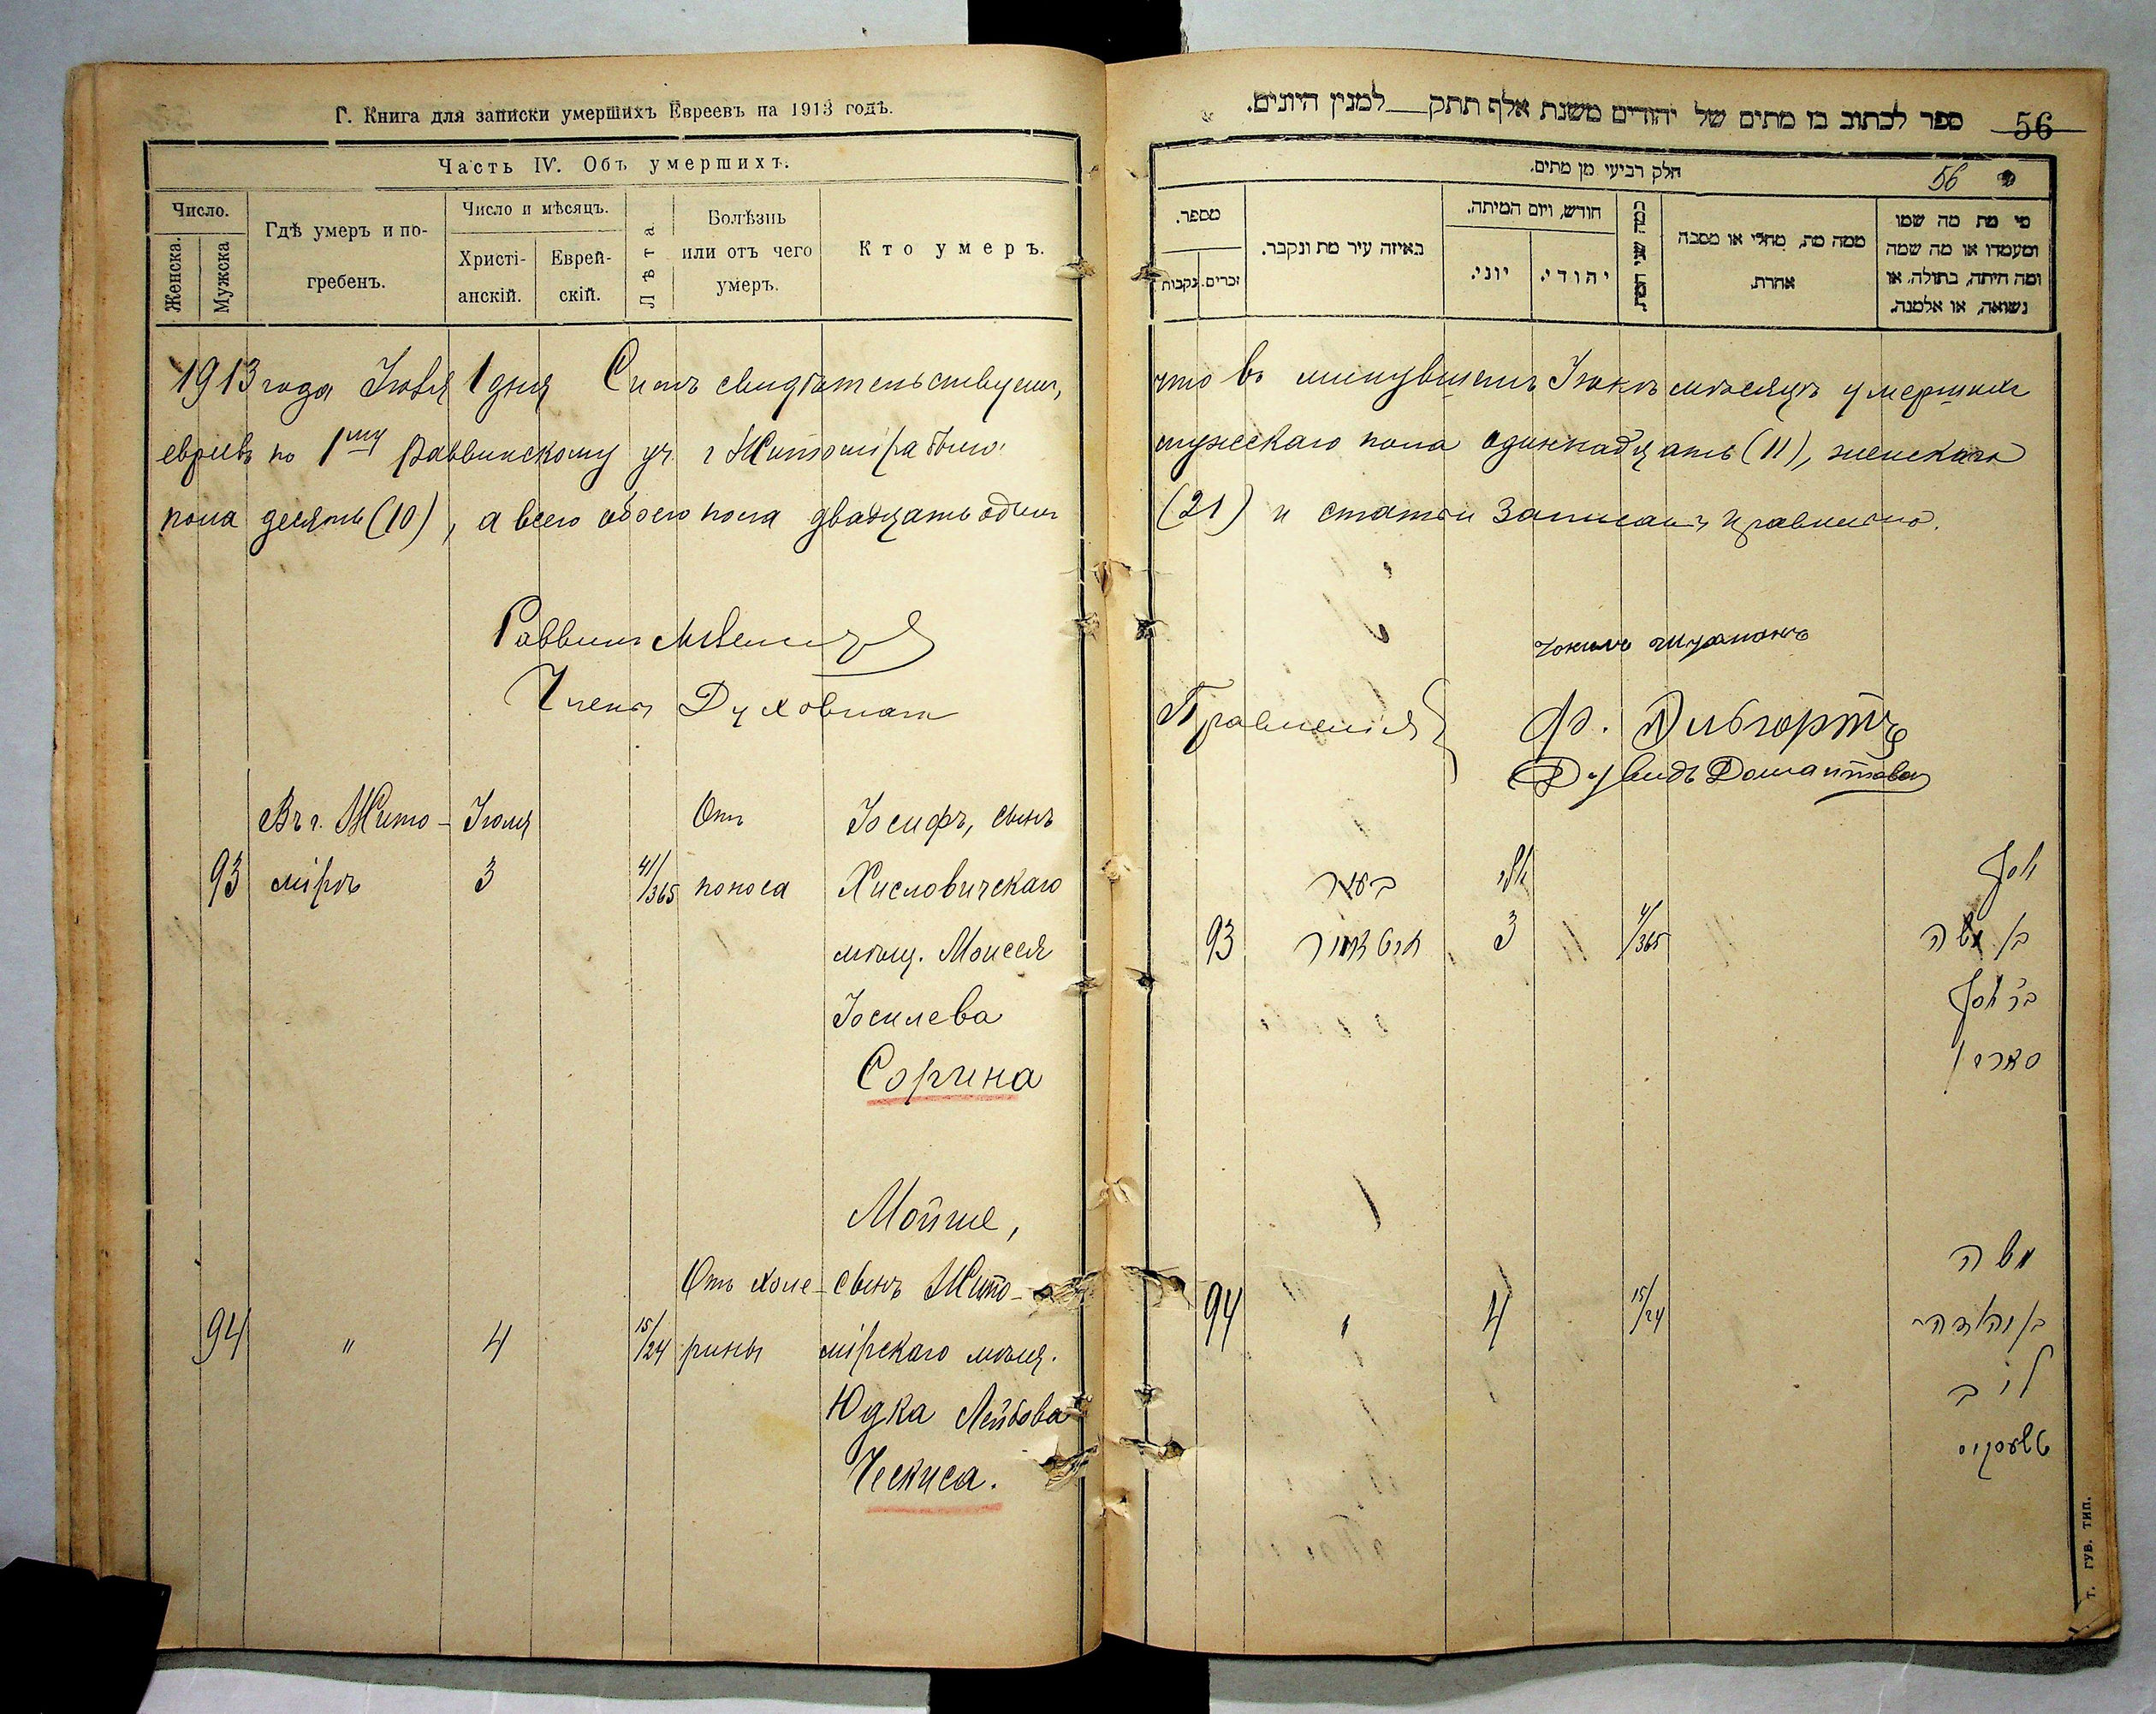 Г. Книга для записки умершихъ Евреевъ на 1913 годъ.
Часть IV. Объ умершихъ.
Число.
Женска.
Мужска
Гдѣ умеръ и по-
гребенъ.
Число и мѣсяцъ.
Христі-
анскій.
Еврей-
скій.
Лѣта
Болѣзнь
или отъ чего
умеръ.
Кто умеръ.
1913 года Іюля 1 дня Симъ свидѣтельствуемъ,
евреевъ по 1му Раввинскому уч. г Житоміра было:
пола десять (10), а всего обоего пола двадцать одинъ
Раввинъ
Члены Духовнаго
Въ г. Жито-
мірѣ
93
Іюля
3
41/365
Отъ
поноса
Іосифъ, сынъ
Хисловичскаго
мѣщ. Моисея
Іосилева
Сорина
94
"
4
15/24
Отъ холе-
рины
Мойше,
сынъ Жито-
мірскаго мѣщ.
Юдка Лейбова
Ческиса.
ספר לכתוב בו מתים של יהודים משנת אלף תתק למנין היונים.
56
חלק רביעי מן מתים.
56
מספר.
זכרים.
נקבות
באיזה עיר מת ונקבר.
חודש, ויום המיתה.
יוני.
יהודי.
כמה שני המת
ממה מת, מחלי או מסבה
אחרת.
מי מת מה שמו
ומעמדו או מה שמה
ומה היתה, בתולה, או
נשואה, או אלמנה.
что въ минувшемъ Іюнѣ мѣсяцѣ умершихъ
мужескаго пола одиннадцать (11), женскаго
(21) и статьи записаны правильно.
Правленія
93
בעיר
זיטאמיר
יולי
3
4/365
יוסף
בן משה
בר יוסף
סארין
94
"
4
15/24
משה
בן יהודה
ליב
טשעסקיס
т. губ. тип.